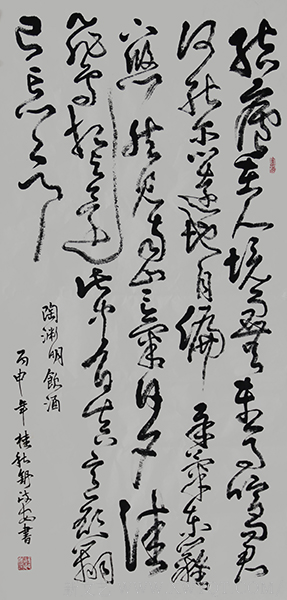 結廬在人境而無車馬喧問君
何能尔心遠地自偏采菊東籬
下悠然見南山山氣日夕佳
飛鳥相與還此中有真意欲辨
已忘言
陶渊明飲酒
丙申年桂秋書